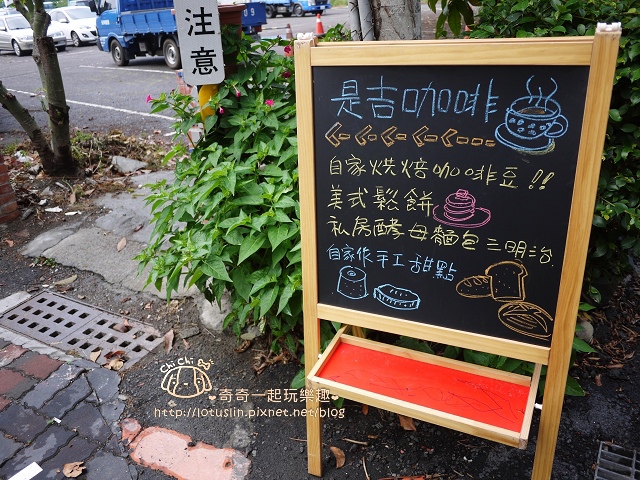 注意
是吉咖啡
自家烘焙咖啡豆!!
美式鬆餅
私房酵母麵包三明治
自家作手工甜點
Chi Chi Boi
♥奇奇一起玩樂趣♥
http://lotuslin.pixnet.net/blog